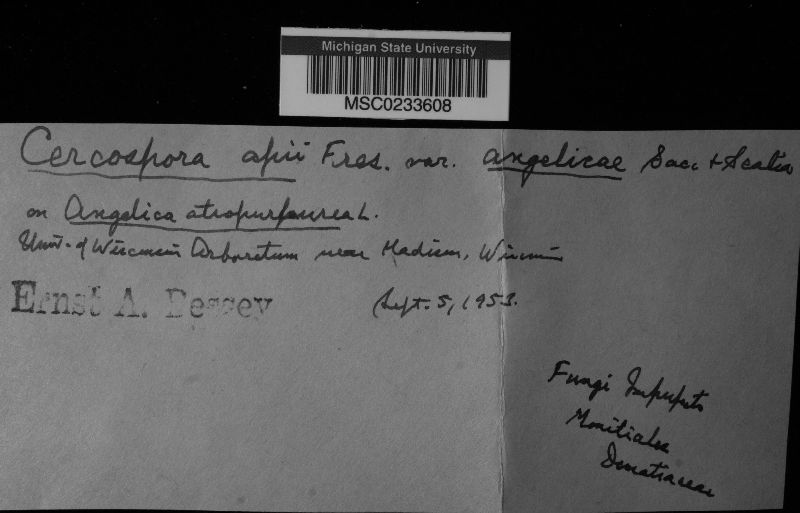 Michigan State University
MSC0233608
Cercospora apii Fres. var. angelicae Sacc & Scalia
on Angelica atropurpurea L.
Univ. of Wisconsin Arboretum near Madison, Wisconsin
Ernst A. Bessey
Sept. 5, 1953.
Fungi Imperfects
Moniliales
Dematiaceae